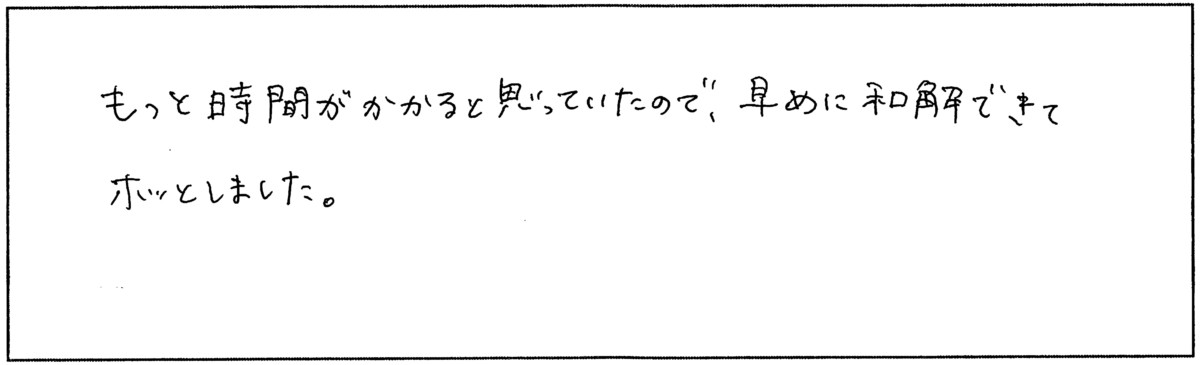 もっと時間がかかると思っていたので、早めに和解できて
ホッとしました。